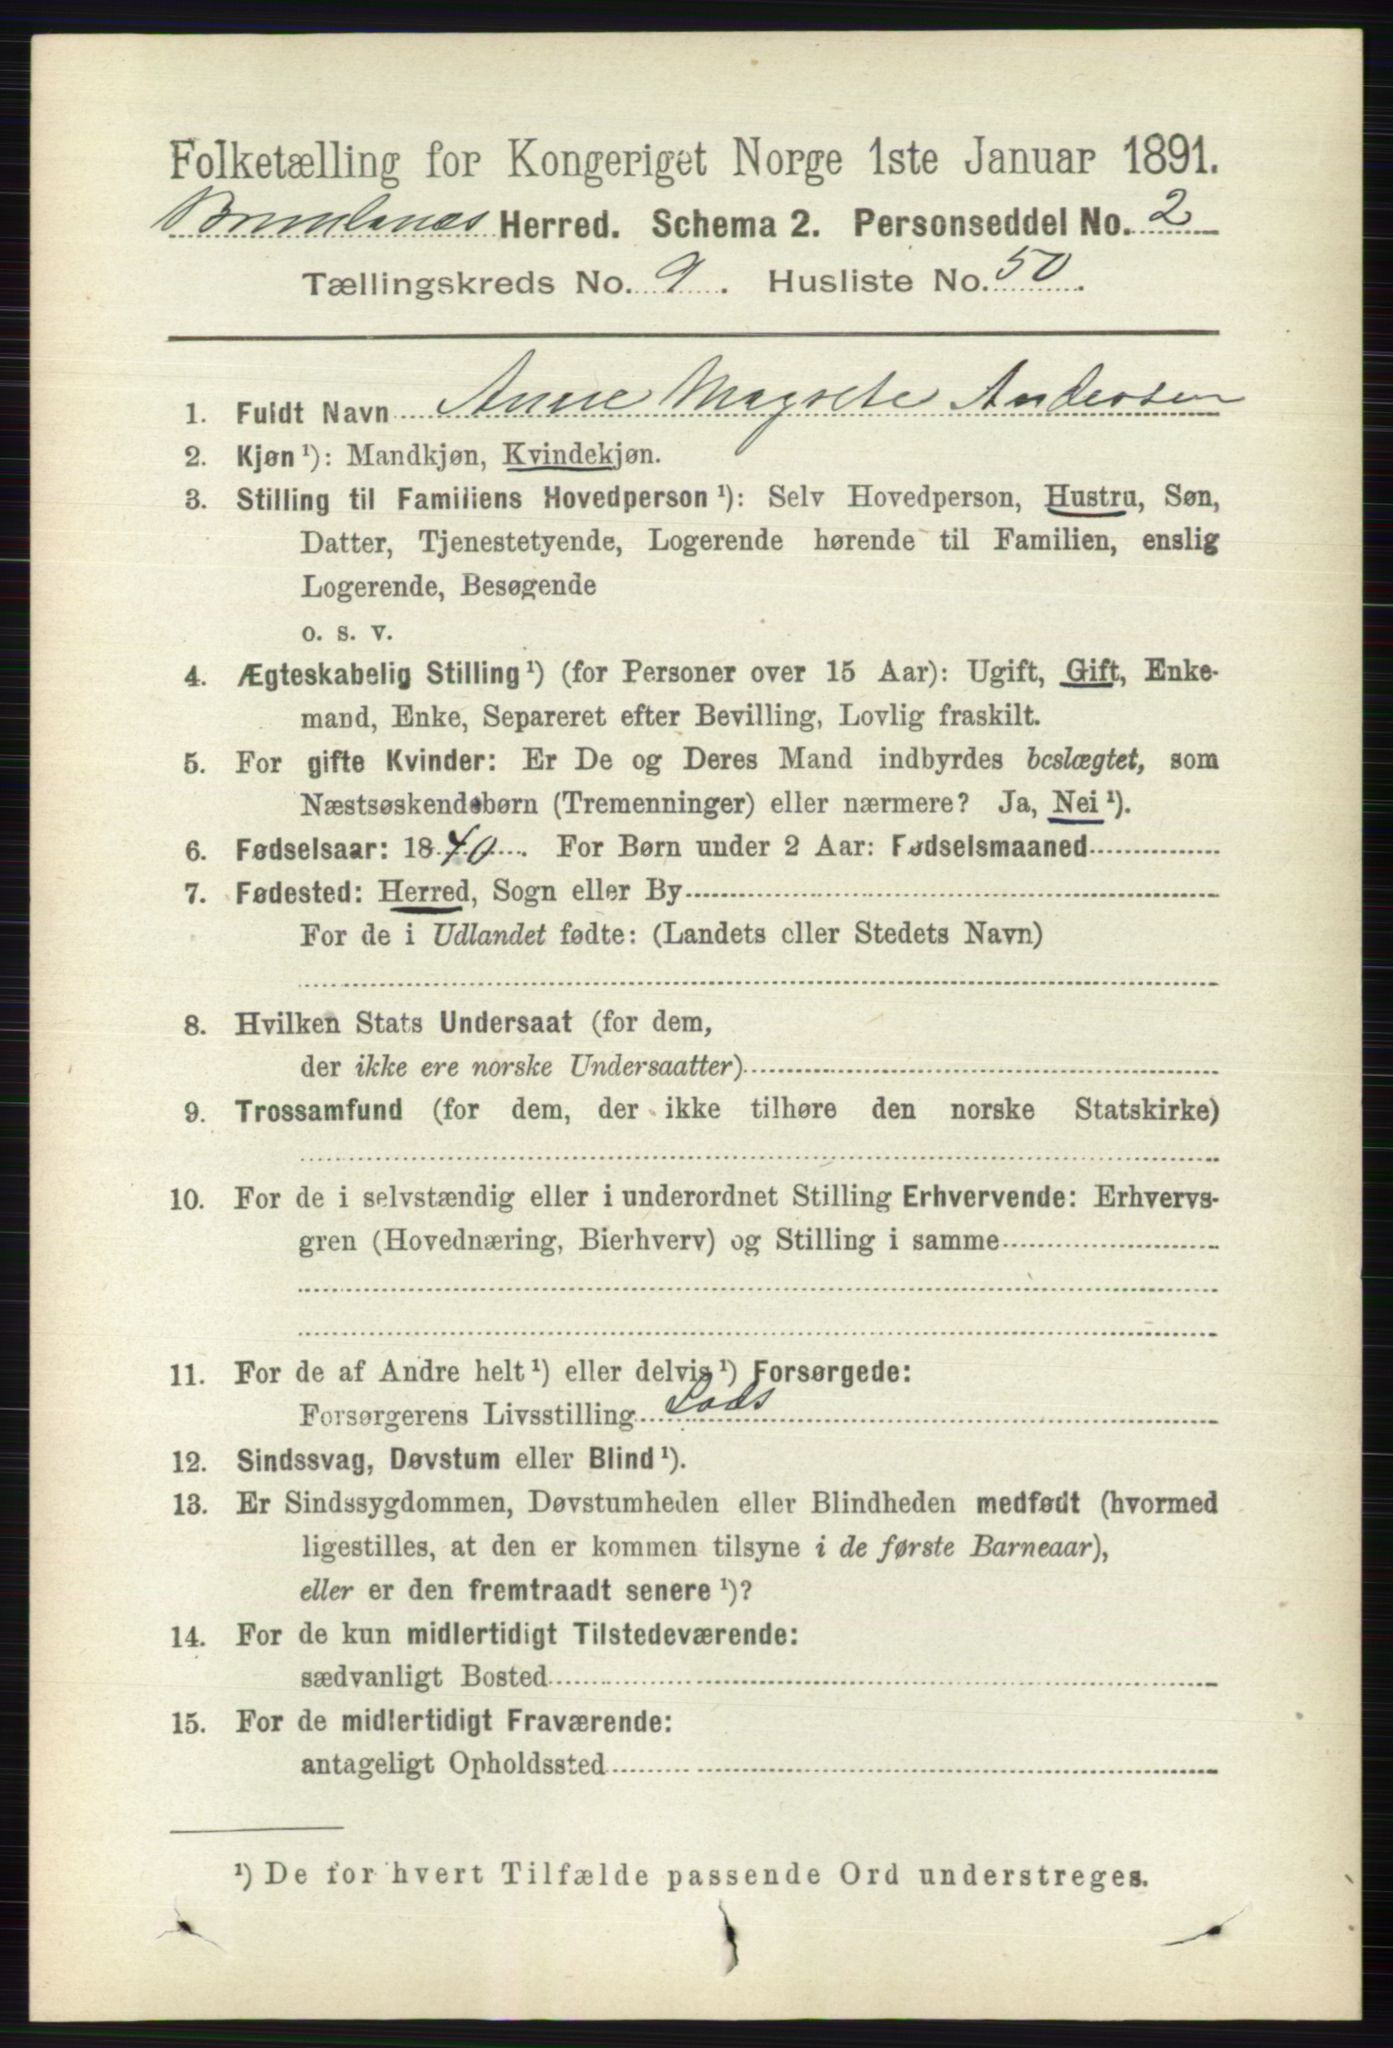 Folketælling for Kongeriget Norge 1ste Januar 1891.
Brunlanæs Herred. Schema 2. Personseddel No. 2
Tællingskreds No. 9. Husliste No. 50.
1. Fuldt Navn Anne Magrete Andersen
2. Kjøn¹): Mandkjøn, Kvindekjøn.
3. Stilling til Familiens Hovedperson¹): Selv Hovedperson, Hustru, Søn,
Datter, Tjenestetyende, Logerende hørende til Familien, enslig
Logerende, Besøgende
o. s. v.
4. Ægteskabelig Stilling¹) (for Personer over 15 Aar): Ugift, Gift, Enke-
mand, Enke, Separeret efter Bevilling, Lovlig fraskilt.
5. For gifte Kvinder: Er De og Deres Mand indbyrdes beslægtet, som
Næstsøskendebørn (Tremenninger) eller nærmere? Ja, Nei¹).
6. Fødselsaar: 1840. For Børn under 2 Aar: Fødselsmaaned
7. Fødested: Herred, Sogn eller By
For de i Udlandet fødte: (Landets eller Stedets Navn)
8. Hvilken Stats Undersaat (for dem,
der ikke ere norske Undersaatter)
9. Trossamfund (for dem, der ikke tilhøre den norske Statskirke)
10. For de i selvstændig eller i underordnet Stilling Erhvervende: Erhvervs-
gren (Hovednæring, Bierhverv) og Stilling i samme
11. For de af Andre helt¹) eller delvis¹) Forsørgede:
Forsørgerens Livsstilling Lods
12. Sindssvag, Døvstum eller Blind¹).
13. Er Sindssygdommen, Døvstumheden eller Blindheden medfødt (hvormed
ligestilles, at den er kommen tilsyne i de første Barneaar),
eller er den fremtraadt senere¹)?
14. For de kun midlertidigt Tilstedeværende:
sædvanligt Bosted
15. For de midlertidigt Fraværende:
antageligt Opholdssted
¹) De for hvert Tilfælde passende Ord understreges.